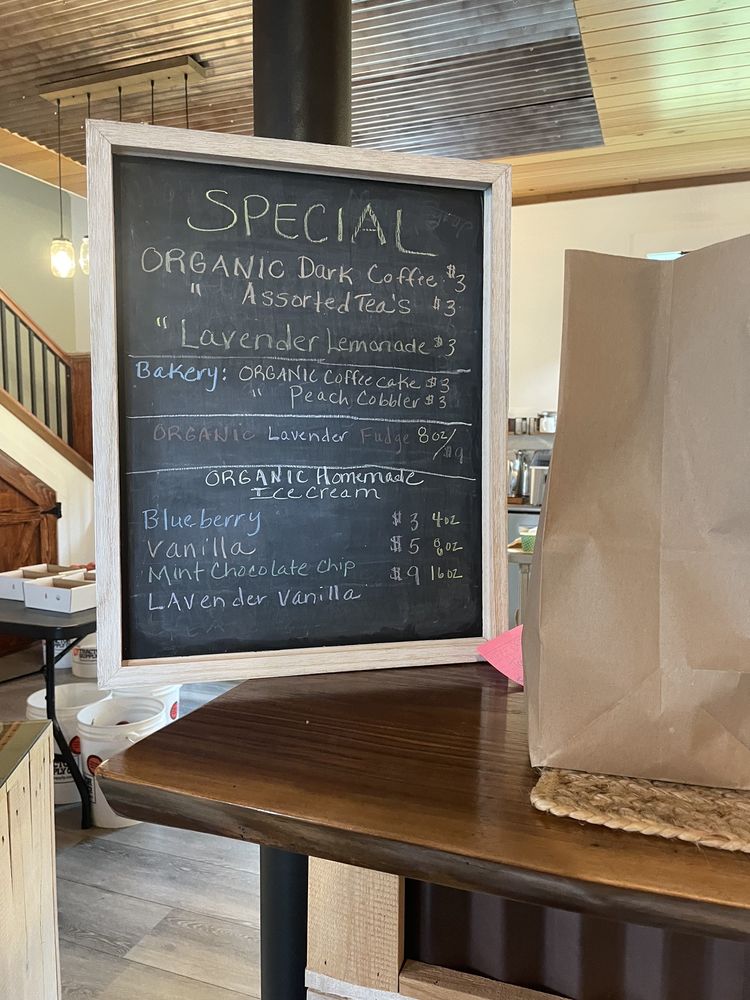 SPECIAL
ORGANIC Dark Coffee $3
" Assorted Tea's $3
" Lavender Lemonade $3
Bakery: ORGANIC Coffee cake $3
" Peach Cobbler $3
ORGANIC Lavender Fudge 8oz/$9
ORGANIC Homemade
Ice cream
Blueberry $3 4oz
Vanilla $5 8oz
Mint Chocolate Chip $9 16oz
LAvender Vanilla